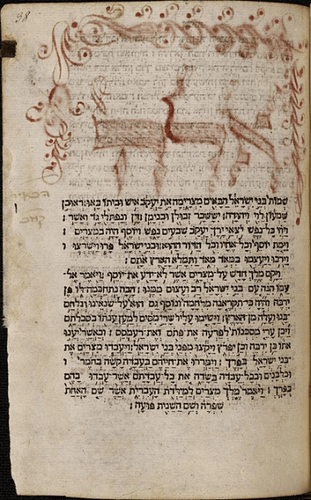 ואלה
שמות בני ישראל הבאים מצרימה את יעקב איש וביתו באו ראובן
שמעון לוי ויהודה יששכר זבולן ובנימן דן ונפתלי גד ואשר
ויהי כל נפש יצאי ירך יעקב שבעים נפש ויוסף היה במצרים
וימת יוסף וכל אחיו וכל הדור ההוא ובני ישראל פרו וישרצו
וירבו ויעצמו במאד מאד ותמלא הארץ אתם
ויקם מלך חדש על מצרים אשר לא ידע את יוסף ויאמר אל
עמו הנה עם בני ישראל רב ועצום ממנו הבה נתחכמה לו פן
ירבה והיה כי תקראנה מלחמה ונוסף גם הוא על שנאינו ונלחם
בנו ועלה מן הארץ וישימו עליו שרי מסים למען ענתו בסבלתם
ויבן ערי מסכנות לפרעה את פתם ואת רעמסס וכאשר יענו
אתו כן ירבה וכן יפרץ ויקצו מפני בני ישראל ויעבדו מצרים את
בני ישראל בפרך וימררו את חייהם בעבדה קשה בחמר
ובלבנים ובכל עבדה בשדה את כל עבדתם אשר עבדו בהם
בפרך ויאמר מלך מצרים למילדת העברית אשר שם האחת
שפרה ושם השנית פועה